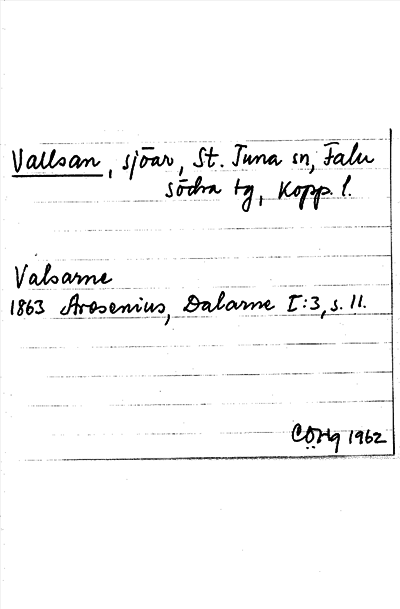 Vallsan, sjöar, St. Tuna sn, Falu
södra tg, Kopp. l.
Valsarne
1863 Arosenius, Dalarne I:3, s. 11.
CÖHg 1962